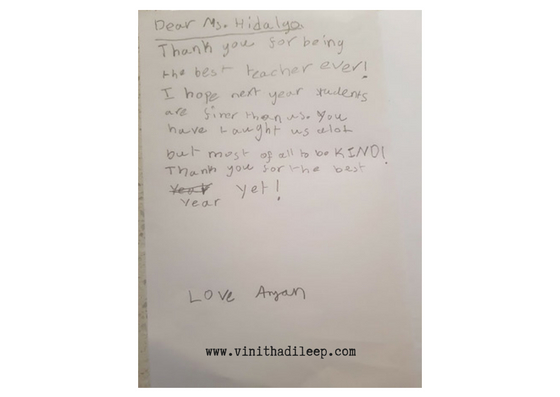 Dear Ms. Hidalgo
Thank you for being
the best teacher ever!
I hope next year students
are finer than us. You
have taught us alot
but most of all to be KIND!
Thank you for the best
year yet!
LOVE Aryan
www.vinithadileep.com